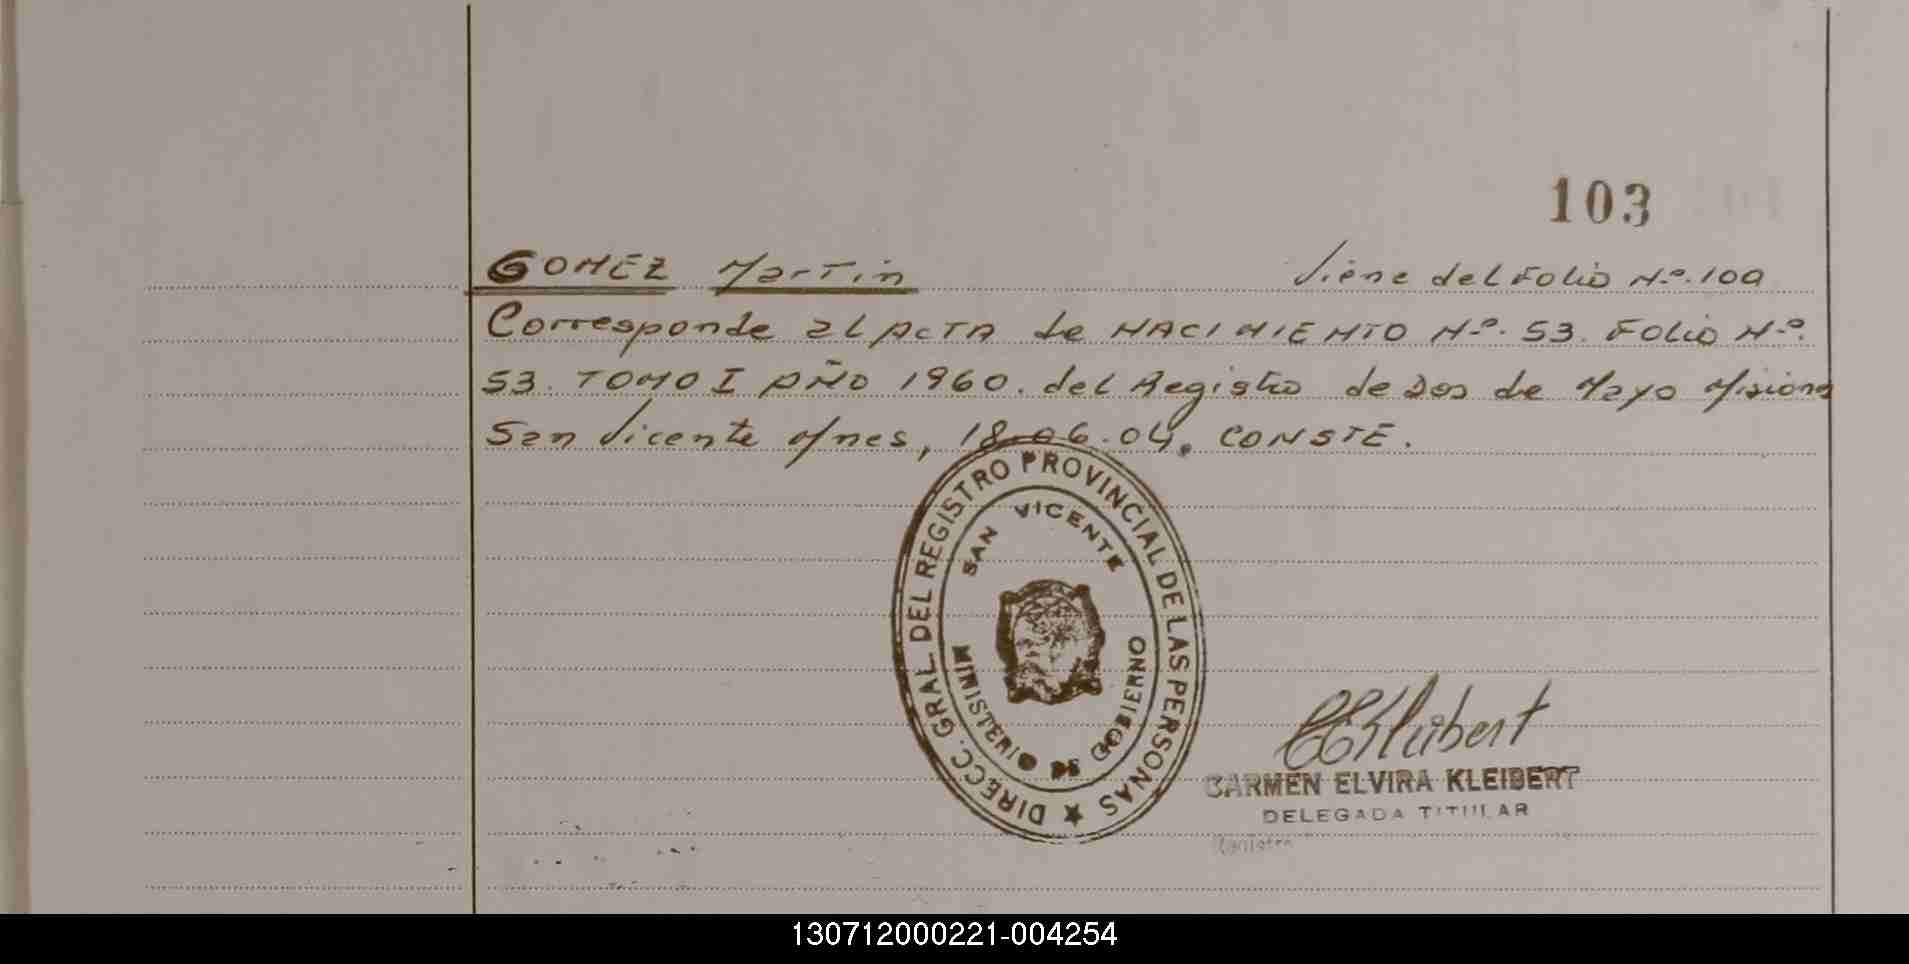 103
GOMEZ Martin Viene del Folio Nº. 100
Corresponde al ACTA de NACIMIENTO Nº. 53. FOLIO Nº.
53. TOMO I AÑO 1960. del Registro de Dos de Mayo Misiones
San Vicente Mnes, 18.06.04. CONSTE.
DIRECC. GRAL. DEL REGISTRO PROVINCIAL DE LAS PERSONAS ★
SAN VICENTE
MINISTERIO DE GOBIERNO
CEKleibert
CARMEN ELVIRA KLEIBERT
DELEGADA TITULAR
130712000221-004254